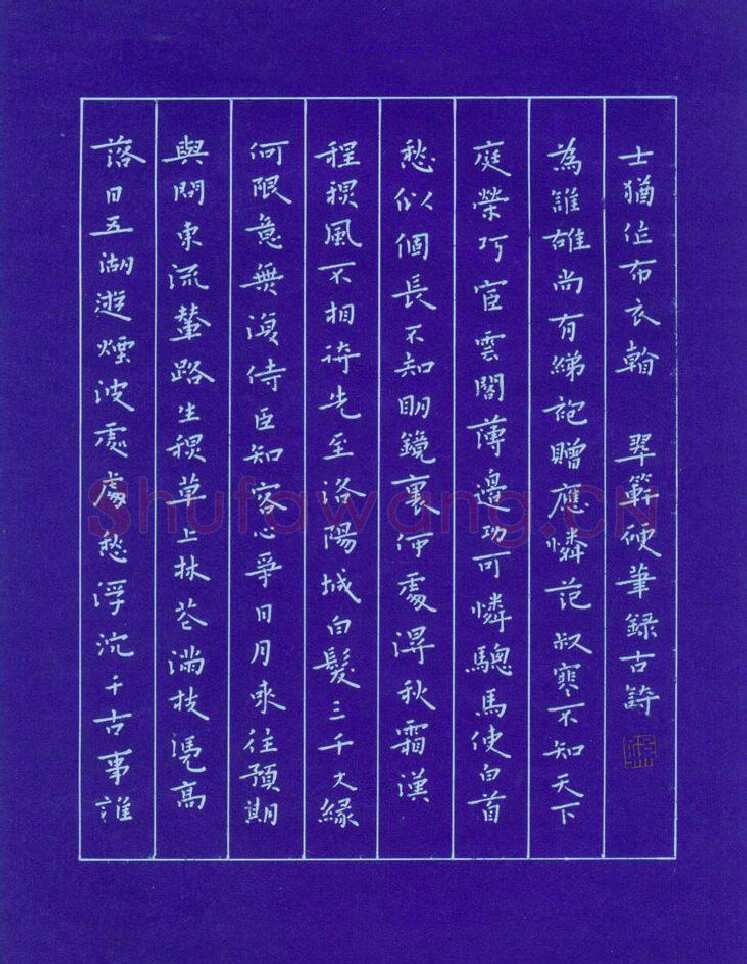 落日五湖遊煙波處處愁浮沉千古事誰
與問東流輦路生秋草上林花滿枝憑高
何限意無復侍臣知客心爭日月來往預期
程秋風不相待先至洛陽城白髮三千丈緣
愁似個長不知明鏡裏何處得秋霜漢
庭榮巧宦雲閣薄邊功可憐驄馬使白首
為誰雄尚有綈袍贈應憐范叔寒不知天下
士猶作布衣翰 翠範硬筆錄古詩
Shufawang.CN